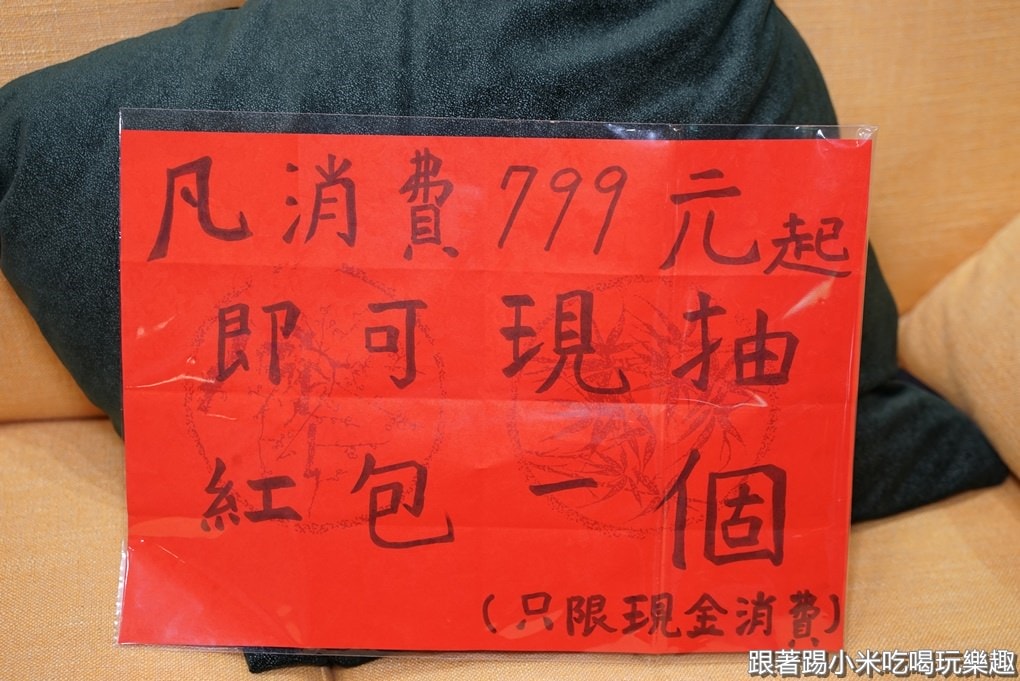 凡消費799元起
即可現抽
紅包一個
(只限現金消費)
跟著踢小米吃喝玩樂趣